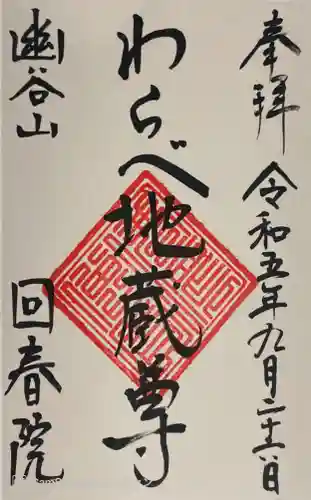 奉拝 令和五年九月二十二日
わらべ地蔵尊
幽谷山 回春院